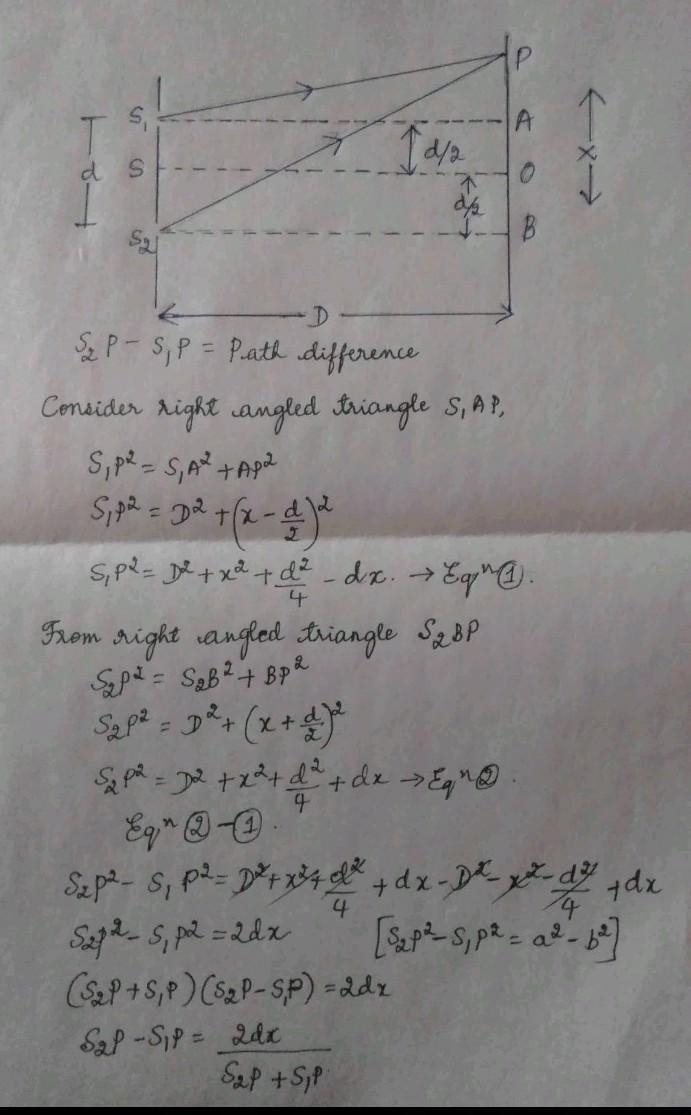 P
S₁ A
d/2
d S O x
d/2
S₂ B
D
S₂P − S₁P = Path difference
Consider right angled triangle S₁AP,
S₁P² = S₁A² + AP²
S₁P² = D² + (x − d/2)²
S₁P² = D² + x² + d²/4 − dx. → Eqⁿ ①.
From right angled triangle S₂BP
S₂P² = S₂B² + BP²
S₂P² = D² + (x + d/2)²
S₂P² = D² + x² + d²/4 + dx → Eqⁿ ②.
Eqⁿ ② − ①.
S₂P² − S₁P² = D² + x² + d²/4 + dx − D² − x² − d²/4 + dx
S₂P² − S₁P² = 2dx [S₂P² − S₁P² = a² − b²]
(S₂P + S₁P) (S₂P − S₁P) = 2dx
S₂P − S₁P = 2dx / S₂P + S₁P